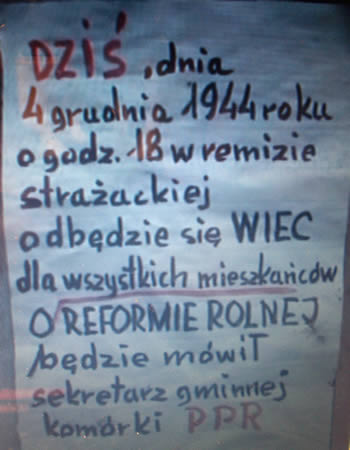 DZIŚ, dnia
4 grudnia 1944 roku
o godz. 18 w remizie
strażackiej
odbędzie się WIEC
dla wszystkich mieszkańców
O REFORMIE ROLNEJ
będzie mówił
sekretarz gminnej
komórki PPR